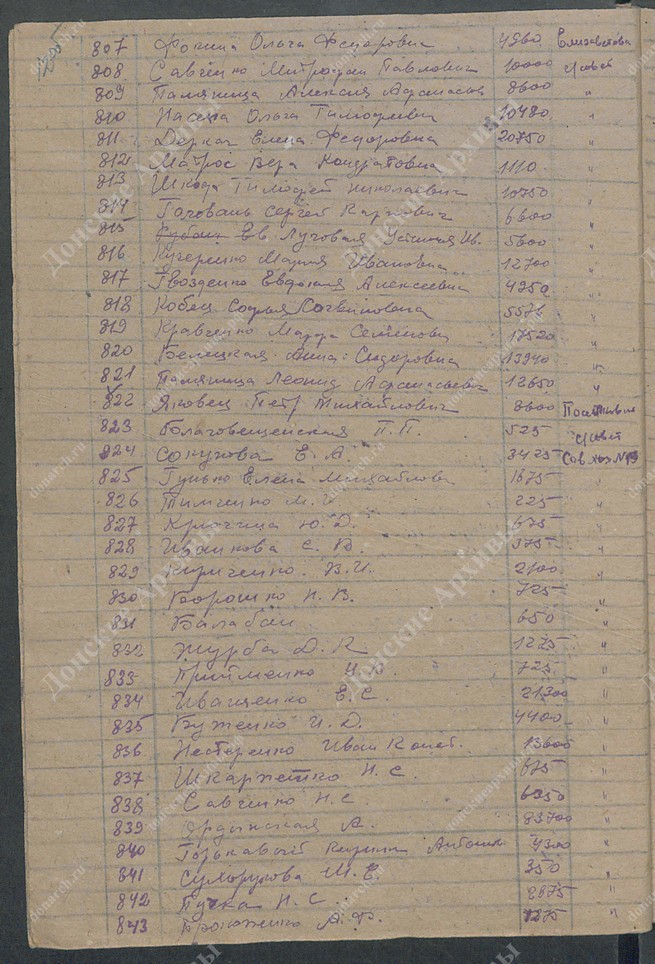 807 Фоница Ольга Федоровна 4960 Елизаветова
808 Савченко Митрофан Павлович 10000 с/совет
809 Памяница Алексей Афанасьев 8600 "
810 Насека Ольга Тимофеевна 10480 "
811 Деркач Елена Федоровна 20750 "
812 Матрос Вера Кондратовна 1110 "
813 Шкода Тимофей Николаевич 10750 "
814 Головань Сергей Карпович 6600 "
815 Ев Луговая Устинья Ив. 5600 "
816 Кучеренко Мария Ивановна 12700 "
817 Гвозденко Евдокия Алексеевна 4250 "
818 Кобец Софья Логвиновна "
819 Кравченко Марфа Семенов 17520 "
820 Белецкая Анна Сидоровна 13940 "
821 Памяница Леонид Афанасьевич 12650 "
822 Яковец Петр Михайлович 8600
823 Благовещенская П.П. 525 с/совет
824 Сокурова Е. А. 3425 Совхоз №19
825 Гунько Елена Михайлов 1675 "
826 Тимченко М. И 225 "
827 Крючица Ю. Д. 675 "
828 Иванкова С. В. 375 "
829 Кириченко В.И. 2100 "
830 Борошко Н. В. 725 "
831 Балабан 650 "
832 Журба Д. К 1275 "
833 Прийменко 725 "
834 Иващенко Е. С. 21300 "
835 Буженко И. Д. 4400 "
836 Нестеренко Иван Конст. 13600 "
837 Шкарпетко Н. С. 675 "
838 Савченко Н. С. 6050 "
839 Ордынская А. 83700 "
840 Горькавый Кирилл Антонов 4300 "
841 Сумарукова М. Е. 350 "
842 Пучка Н. С. 2875 "
843 А. Ф. 1275 "
Донские Архивы
donarch.ru